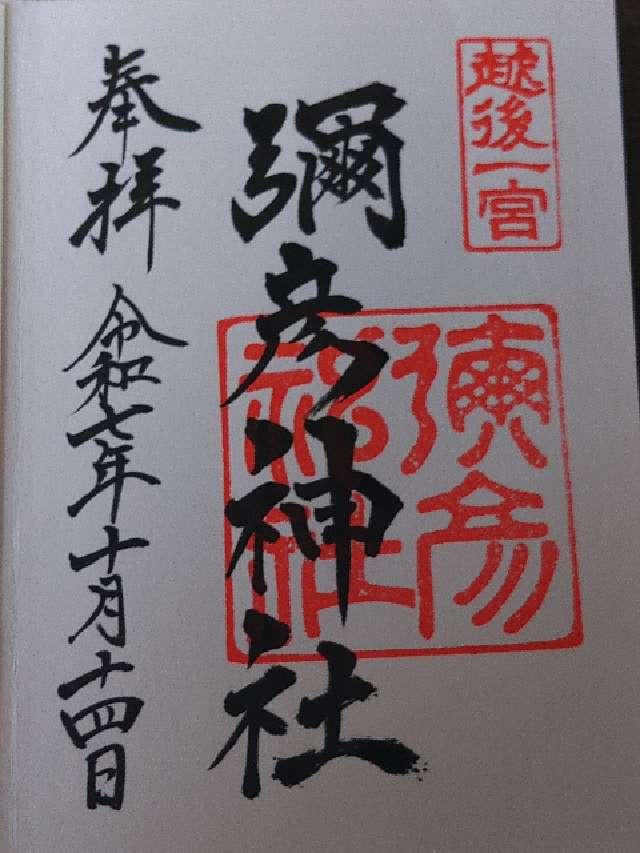 越後一宮
彌彦神社
彌彦
神社
奉拝 令和七年十月十四日